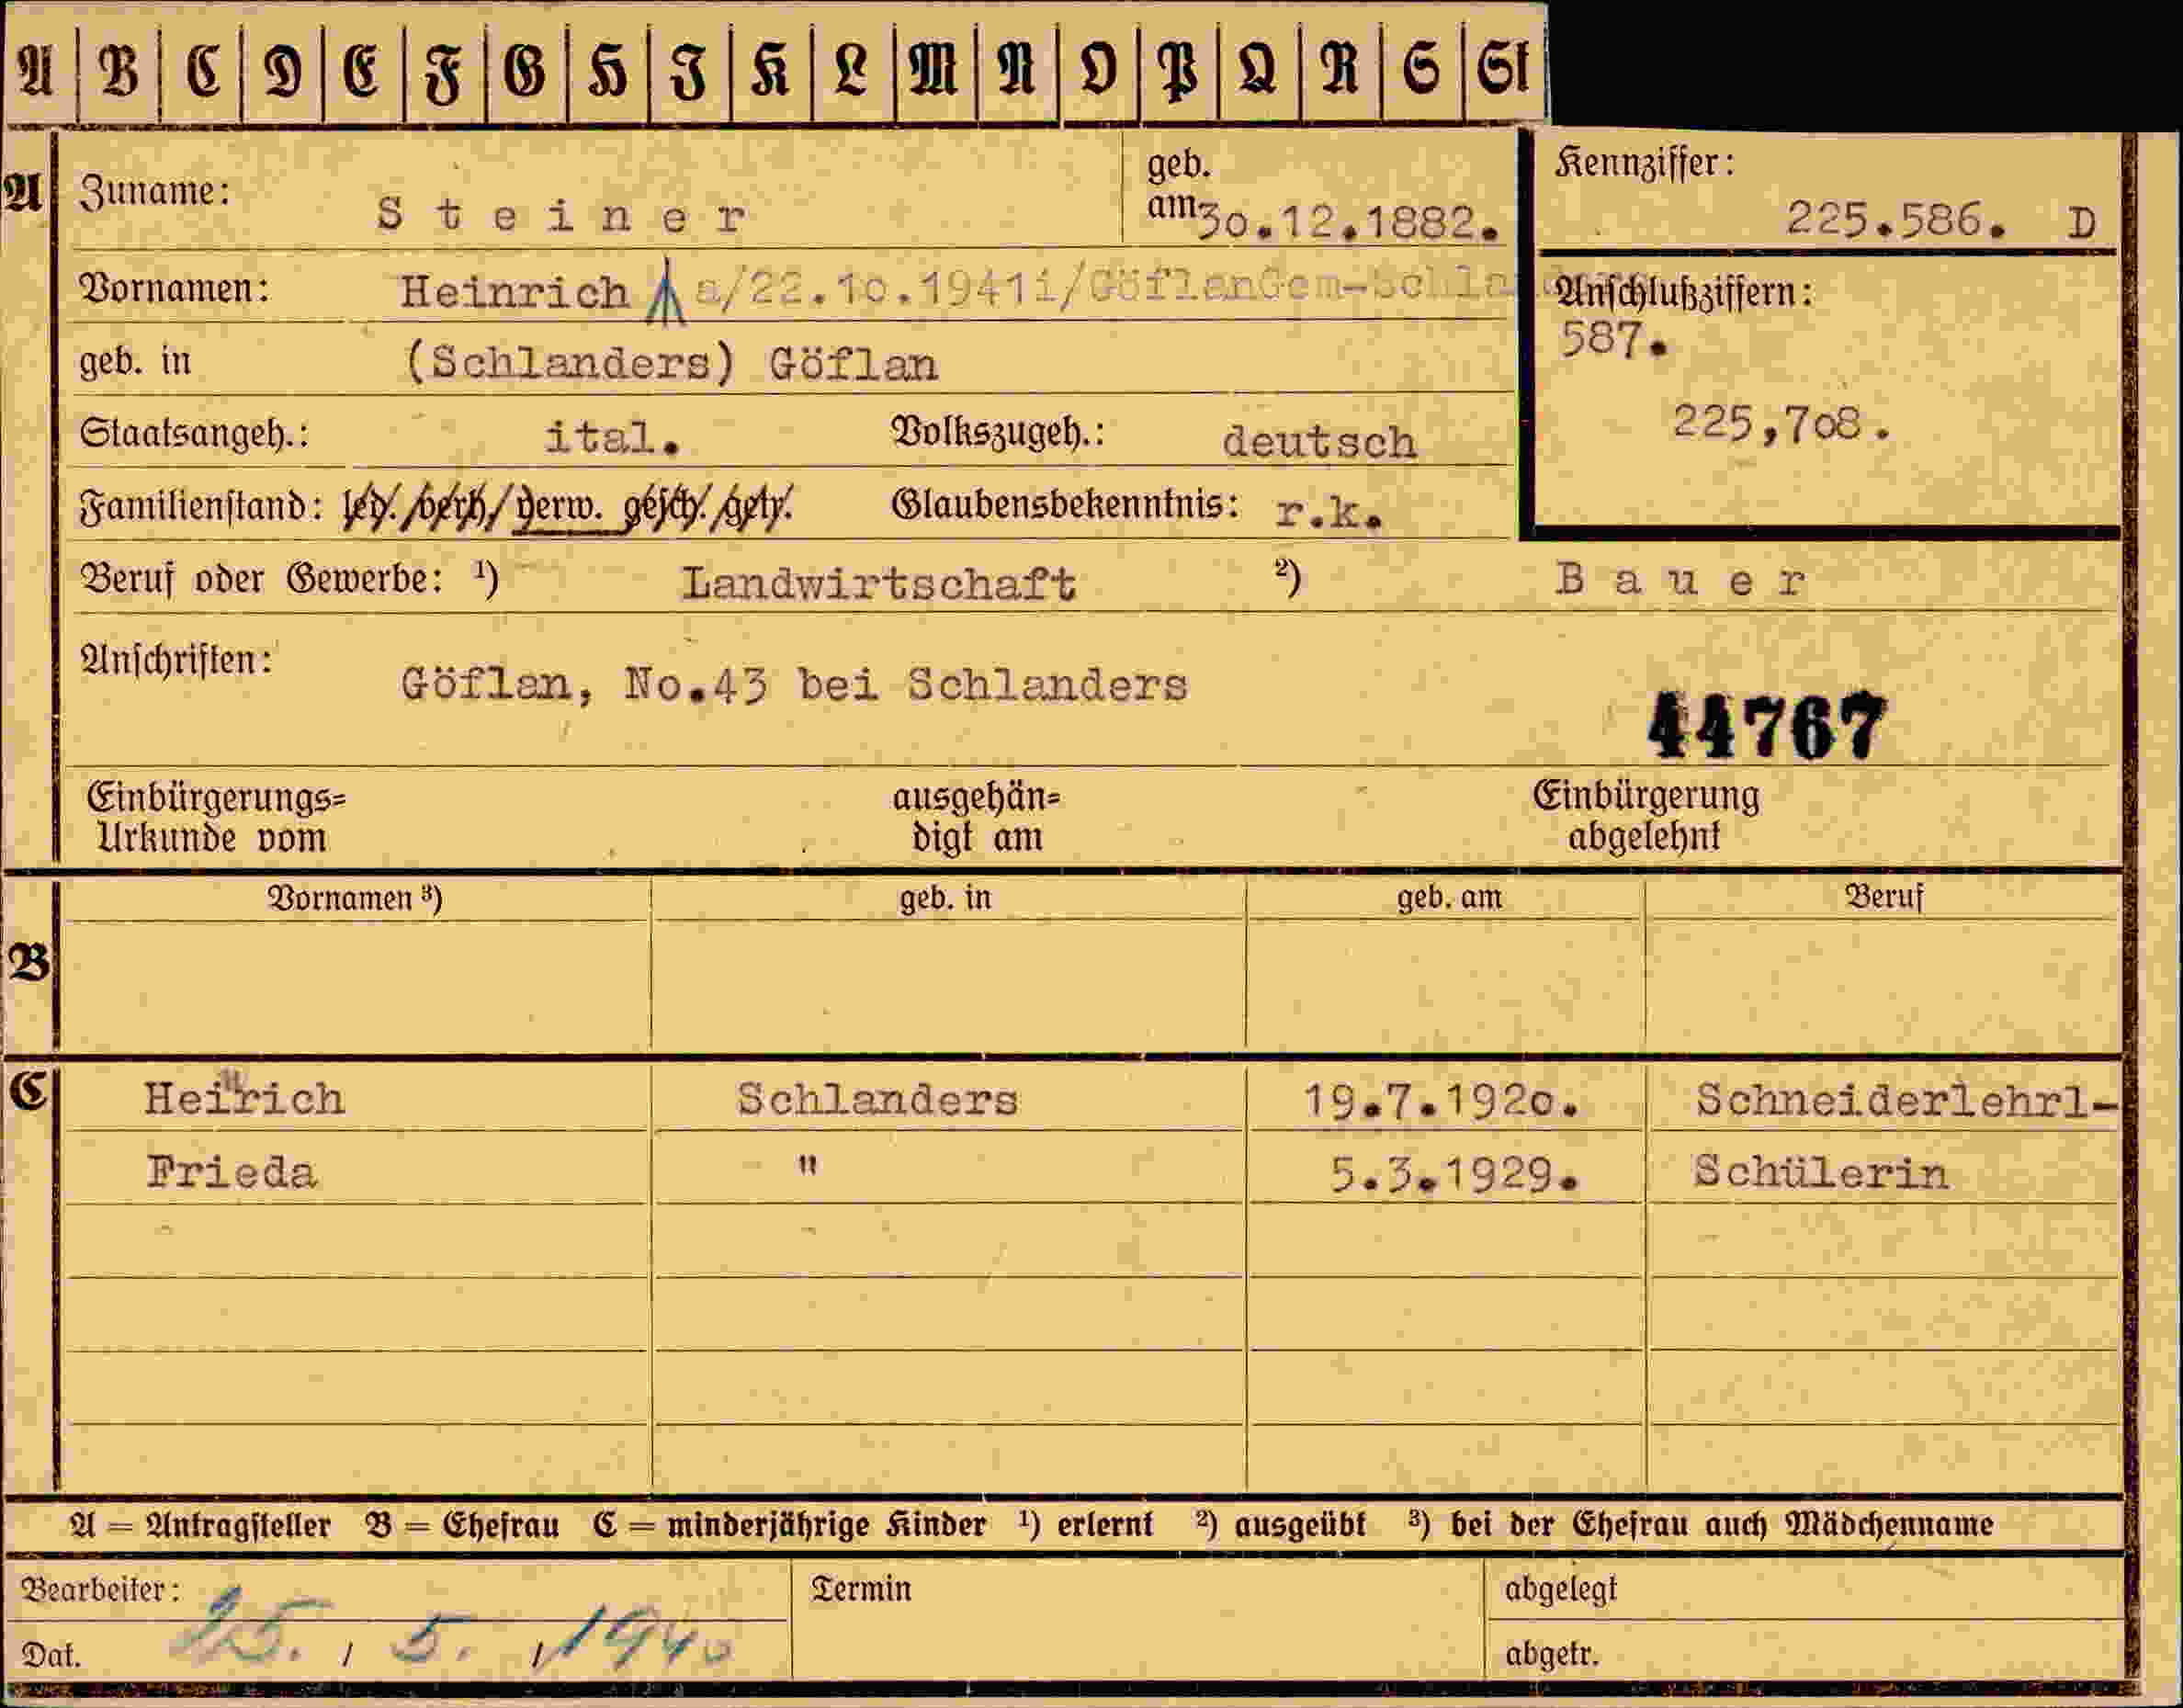 A B C D E F G H I K L M N O P Q R S St
A Zuname: Steiner geb. am 30.12.1882. Kennziffer: 225.586. D
Vornamen: Heinrich a/22.10.1941i/GöflanGem-Schla
Anschlußziffern:
587.
geb. in (Schlanders) Göflan
225,708.
Staatsangeh.: ital. Volkszugeh.: deutsch
Familienstand: led./verh./verw. gesch./getr. Glaubensbekenntnis: r.k.
Beruf oder Gewerbe: ¹) Landwirtschaft ²) Bauer
Anschriften: Göflan, No.43 bei Schlanders
44767
Einbürgerungs= ausgehän= Einbürgerung
Urkunde vom digt am abgelehnt
Vornamen ³) geb. in geb. am Beruf
B
C Heinrich Schlanders 19.7.1920. Schneiderlehrl-
Frieda " 5.3.1929. Schülerin
A = Antragsteller B = Ehefrau C = minderjährige Kinder ¹) erlernt ²) ausgeübt ³) bei der Ehefrau auch Mädchenname
Bearbeiter: Termin abgelegt
Dat. 25. / 5. / 1940 abgetr.